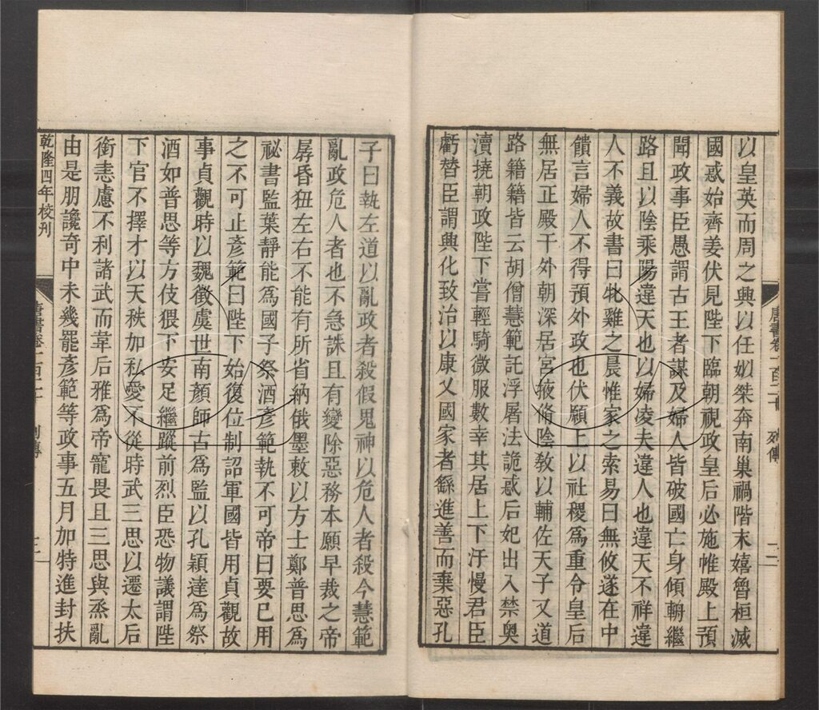 以皇英而周之興以任姒桀奔南巢禍階末嬉魯桓滅
國惑始齊姜伏見陛下臨朝視政皇后必施帷殿上預
聞政事臣愚謂古王者謀及婦人皆破國亡身傾輈繼
路且以陰乘陽違天也以婦凌夫違人也違天不祥違
人不義故書曰牝雞之晨惟家之索易曰無攸遂在中
饋言婦人不得預外政也伏願上以社稷為重令皇后
無居正殿干外朝深居宮掖脩陰敎以輔佐天子又道
路籍籍皆云胡僧慧範託浮屠法詭惑后妃出入禁奧
瀆撓朝政陛下嘗輕騎微服數幸其居上下汙慢君臣
虧替臣謂興化致治以康乂國家者繇進善而棄惡孔
子曰執左道以亂政者殺假鬼神以危人者殺今慧範
亂政危人者也不急誅且有變除惡務本願早裁之帝
孱昏狃左右不能有所省納俄墨敕以方士鄭普思爲
祕書監葉靜能爲國子祭酒彥範執不可帝曰要已用
之不可止彥範曰陛下始復位制詔軍國皆用貞觀故
事貞觀時以魏徵虞世南顏師古爲監以孔穎達爲祭
酒如普思等方伎猥下安足繼蹤前烈臣恐物議謂陛
下官不擇才以天秩加私愛不從時武三思以遷太后
銜恚慮不利諸武而韋后雅爲帝寵畏且三思與烝亂
由是朋讒奇中未幾罷彥範等政事五月加特進封扶
乾隆四年校刊
唐書卷一百二十 列傳